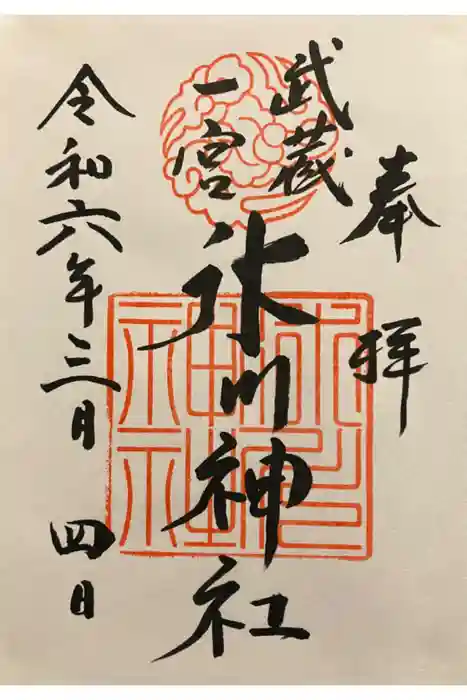 奉拝
武蔵
一宮
氷川神社
令和六年三月四日
氷川神社